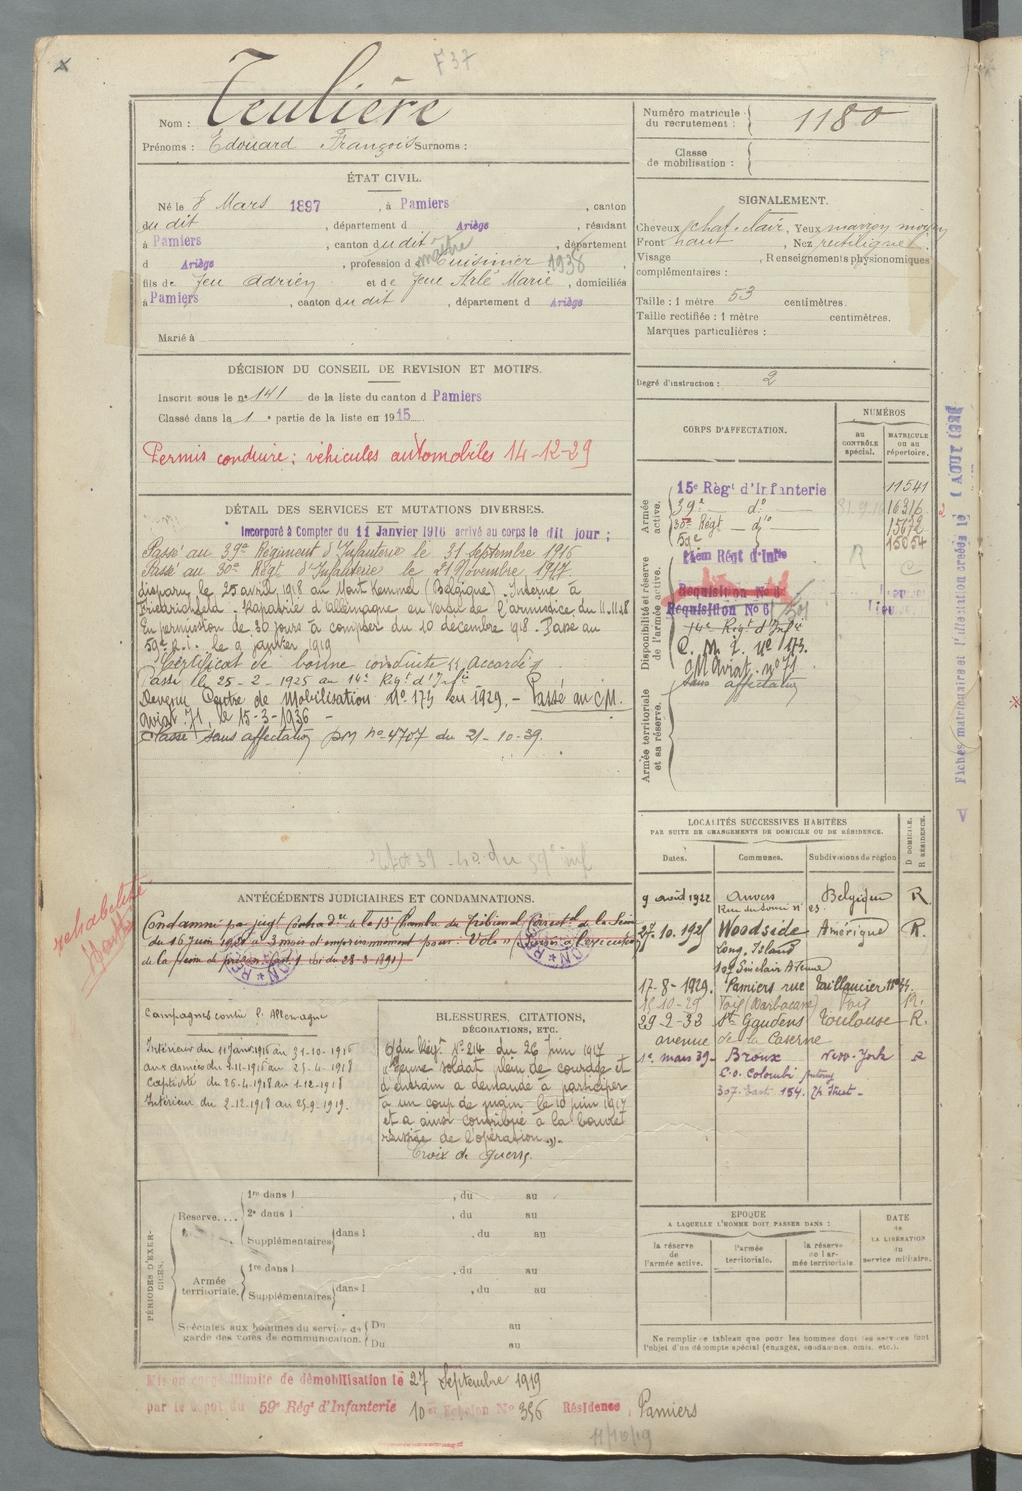 F 37
Nom : Teulière
Prénoms : Edouard François Surnoms :
Numéro matricule du recrutement : 1180
Classe de mobilisation :
ÉTAT CIVIL.
Né le 8 Mars 1897, à Pamiers, canton
du dit, département d Ariège, résidant
à Pamiers, canton du dit, département
d Ariège, profession de maître Cuisinier 1938
fils de feu Adrien et de feue Arlé Marie, domiciliés
à Pamiers, canton du dit, département d Ariège
Marié à
SIGNALEMENT.
Cheveux chat. clair, Yeux marron moyen
Front haut, Nez rectiligne
Visage , Renseignements physionomiques
complémentaires :
Taille : 1 mètre 53 centimètres.
Taille rectifiée : 1 mètre centimètres.
Marques particulières :
DÉCISION DU CONSEIL DE REVISION ET MOTIFS.
Inscrit sous le n° 141 de la liste du canton d Pamiers
Classé dans la 1e partie de la liste en 1915
Permis conduire : véhicules automobiles 14-12-29
Degré d'instruction : 2
CORPS D'AFFECTATION.
NUMÉROS
au CONTRÔLE spécial.
MATRICULE ou au répertoire.
Armée active.
15e Régt d'Infanterie 11541
39e do 16316
30e Régt do 15672
59e 15054
Disponibilité et réserve de l'armée active.
14em Régt d'Infie
Requisition No 6
Requisition No 6
14e Régt d'Infie
C. M. I. No 173.
CM Aviat. no 71
sans affectation
Armée territoriale et sa réserve.
DÉTAIL DES SERVICES ET MUTATIONS DIVERSES.
Incorporé à Compter du 11 Janvier 1916 arrivé au corps le dit jour ;
Passé au 39e Régiment d'Infanterie le 31 Septembre 1916
Passé au 30e Régt d'Infanterie le 21 Novembre 1917.
disparu le 25 avril 1918 au Mont Kemmel (Belgique). Interné à
Friedrichsfeld. Rapatrié d'Allemagne en vertu de l'armistice du 11.11.18
En permission de 30 jours à compter du 10 décembre 1918. Passé au
59e R.I. le 9 janvier 1919
Certificat de bonne conduite accordé
Passé le 25-2-1925 au 14e Régt d'Infie
Devenu Centre de Mobilisation No 173 en 1929. - Passé au CM.
Aviat 71, le 15-3-1936 -
Classé sans affectation PM no 4707 du 21-10-39.
LOCALITÉS SUCCESSIVES HABITÉES
PAR SUITE DE CHANGEMENTS DE DOMICILE OU DE RÉSIDENCE.
Dates. Communes. Subdivisions de région D DOMICILE. R RÉSIDENCE.
9 avril 1922 Anvers Belgique R
27.10.1925 Woodside Amérique R.
Long. Island
Sinclair Avenue
17-8-1929. Pamiers rue Taillancier
15 10-29 Foix (Barbacane) Foix R.
29-2-32 St Gaudens Toulouse R.
avenue de la Caserne
1er mars 39 - Bronx New-York R
C.o. Colombi
307. East 154. th Street -
ANTÉCÉDENTS JUDICIAIRES ET CONDAMNATIONS.
réhabilité
Condamné par jugt Contradre de la 15e Chambre du Tribunal Correctel de la Seine
du 16 Juin à 3 mois d'emprisonnement pour : Vols (Sursis à l'exécution
de la peine de prison loi du 28-3-1891)
Campagnes contre l'Allemagne
Intérieur du 11 Janv. 1916 au 31-10-1916
aux armées du 1-11-1916 au 25-4-1918
Captivité du 26-4-1918 au 1-12-1918
Intérieur du 2-12-1918 au 25-9-1919.
BLESSURES, CITATIONS,
DÉCORATIONS, ETC.
O/ du Régt No 214 du 26 Juin 1917
"Jeune soldat plein de courage et
d'entrain a demandé à participer
à un coup de main le 10 juin 1917
et a ainsi contribué à la bonne
réussite de l'opération".
Croix de guerre.
PÉRIODES D'EXERCICES.
Réserve....
1re dans l , du au
2e dans l , du au
Supplémentaires dans l , du au
Armée territoriale.
1re dans l , du au
Supplémentaires dans l , du au
Spéciales aux hommes du service de garde des voies de communication.
Du au
Du au
EPOQUE
A LAQUELLE L'HOMME DOIT PASSER DANS :
la réserve de l'armée active.
l'armée territoriale.
la réserve de l'armée territoriale.
DATE de LA LIBÉRATION du service militaire.
Ne remplir ce tableau que pour les hommes dont les services font
l'objet d'un décompte spécial (engagés, condamnés, omis, etc.).
Mis en congé illimité de démobilisation le 27 Septembre 1919
par le dépôt du 59e Régt d'Infanterie 10e Echelon No 396 Résidence, Pamiers
11/10/19